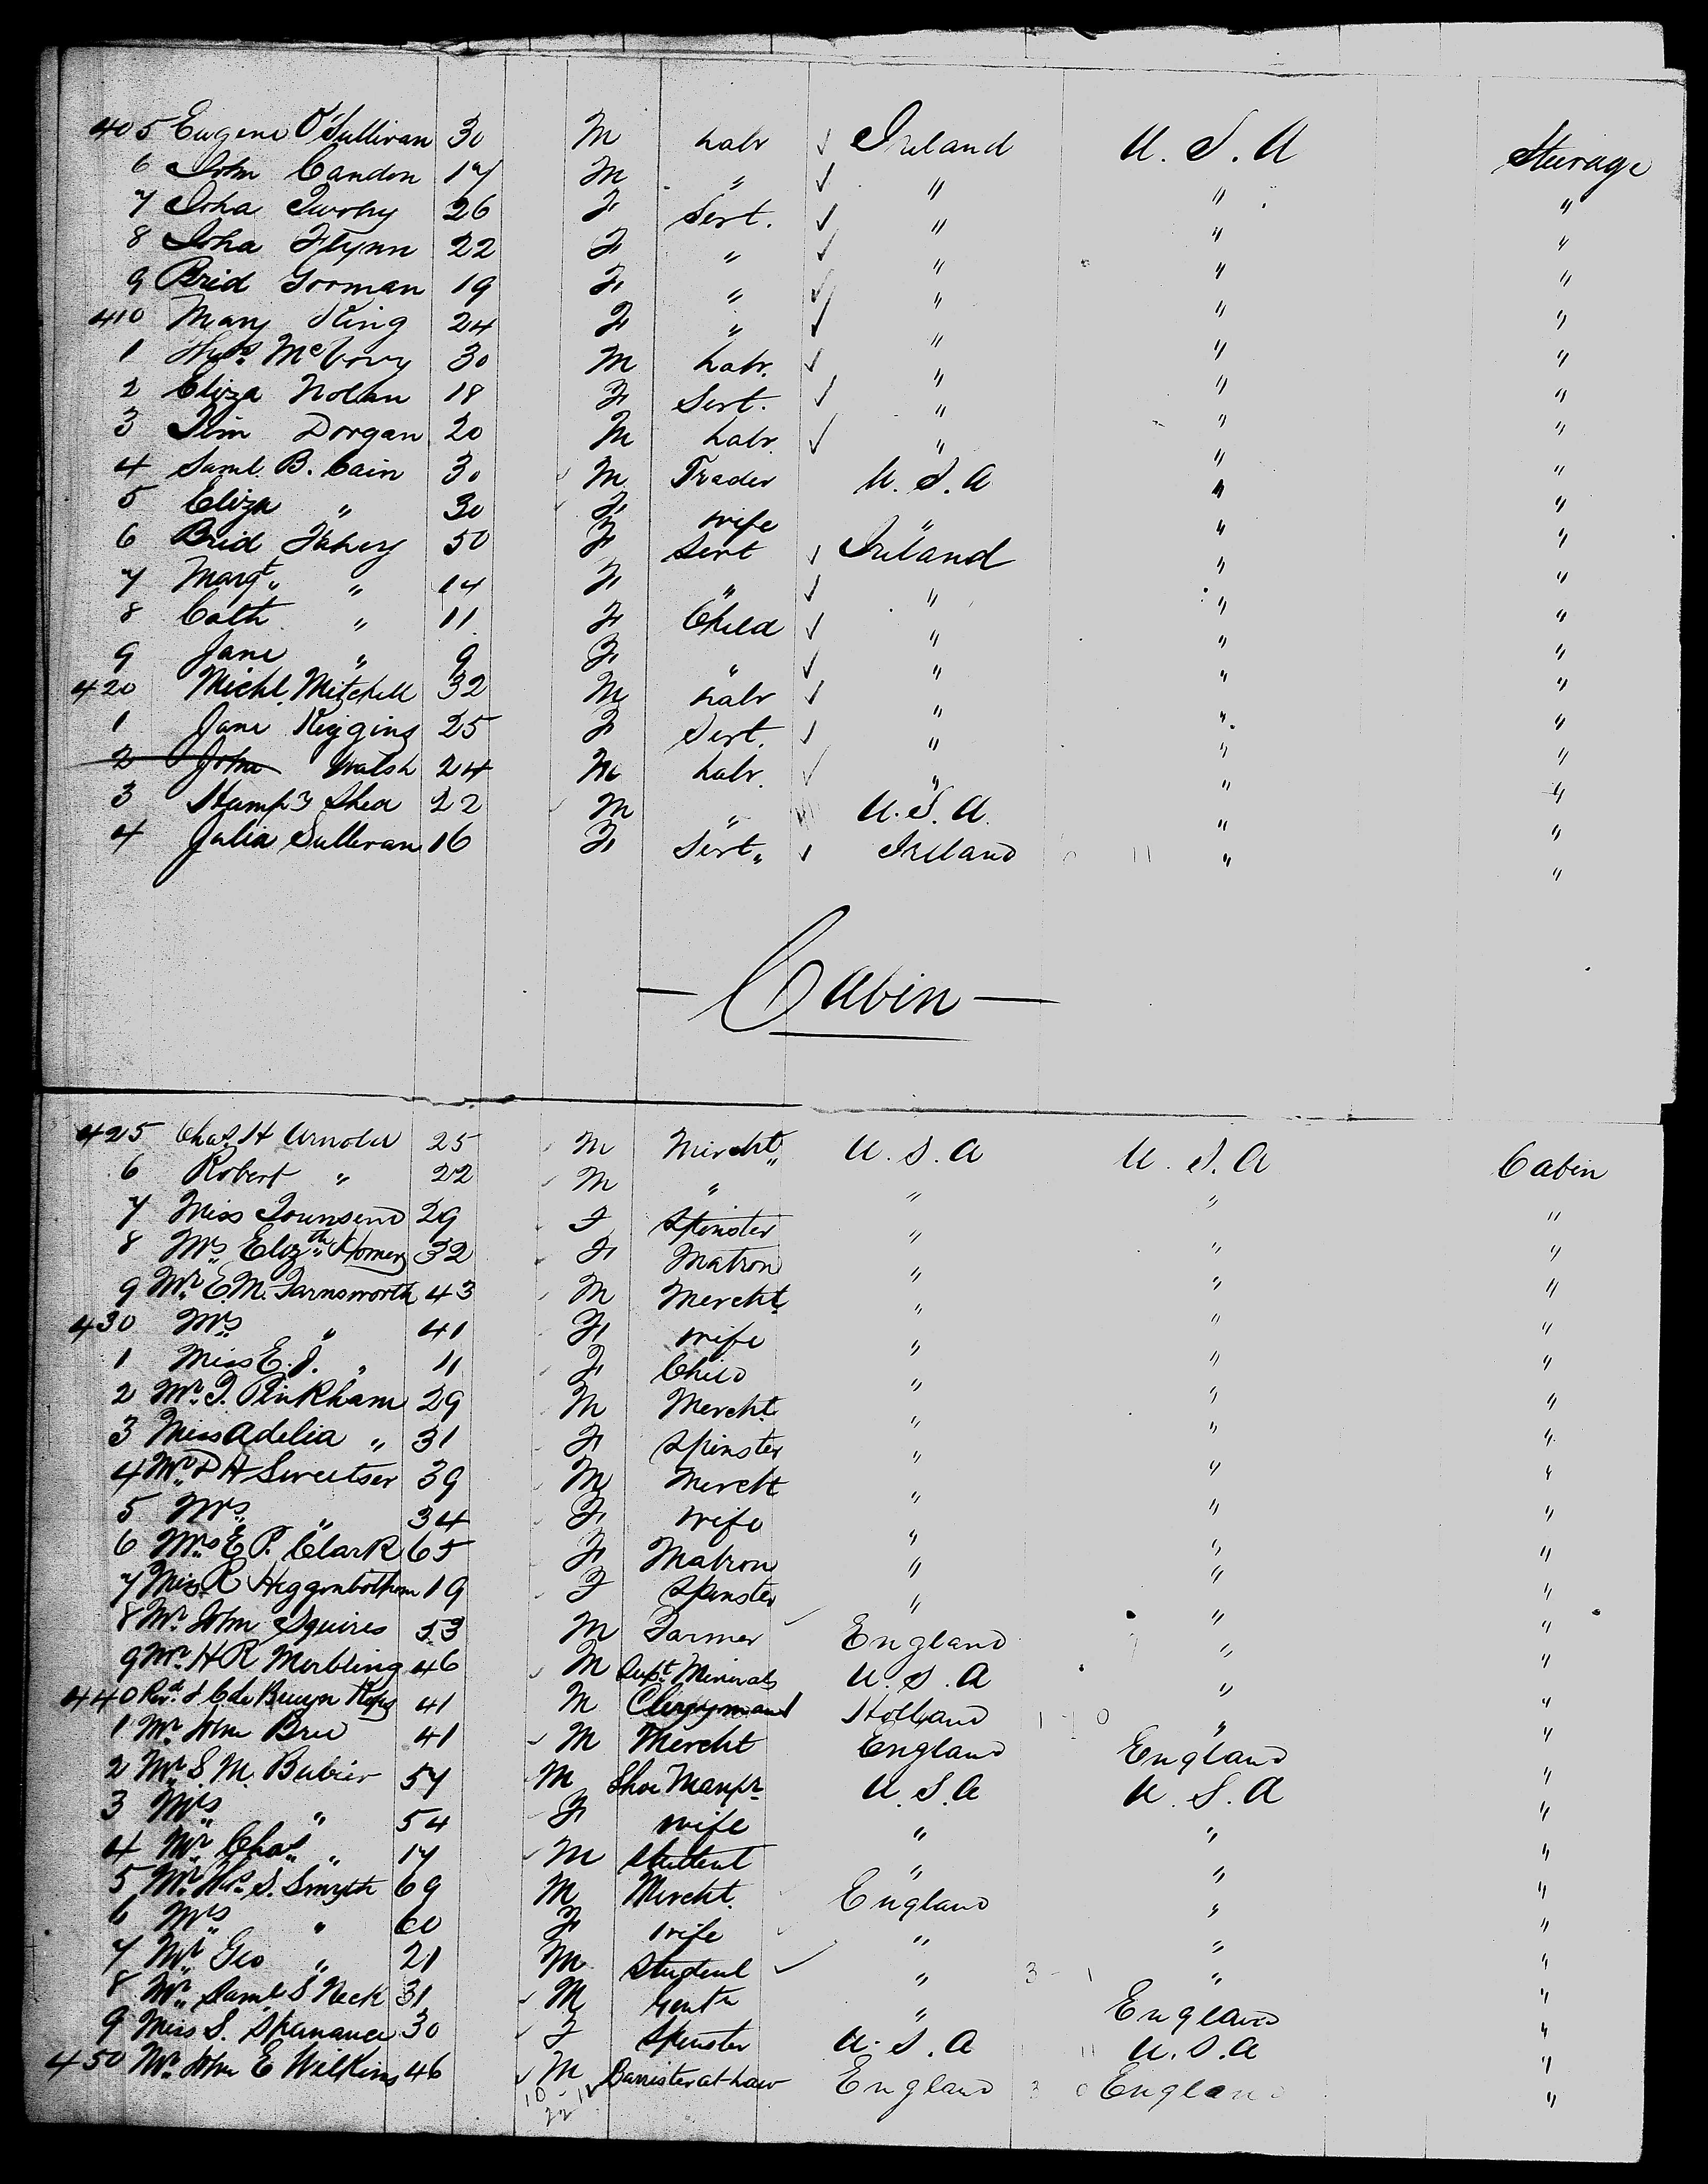 405 Eugene O'Sullivan 30 M Labr ✓ Ireland U.S.A Steerage
6 John Candon 17 M " ✓ " " "
7 Joha Twohy 26 F Servt. ✓ " " "
8 Joha Flynn 22 F " ✓ " " "
9 Brid Gorman 19 F " ✓ " " "
410 Mary King 24 F " ✓ " " "
1 McVovy 30 M Labr. ✓ " " "
2 Eliza Nolan 18 F Servt. ✓ " " "
3 Tim Dorgan 20 M Labr. ✓ " " "
4 Saml. B. Cain 30 M Trader U.S.A " "
5 Eliza " 30 F wife " " "
6 Brid Fahey 50 F Servt ✓ Ireland " "
7 Margt. " 14 F " ✓ " " "
8 Cath " 11 F Child ✓ " " "
9 Jane " 9 F " ✓ " " "
420 Michl. Mitchell 32 M Labr ✓ " " "
1 Jane Higgins 25 F Servt. ✓ " " "
2 John Walsh 24 M Labr. ✓ " " "
3 Shea 22 M " U.S.A. " "
4 Julia Sullivan 16 F Servt. ✓ Ireland 11 " "
— Cabin —
425 Chas. H Arnold 25 M Mercht. U.S.A U.S.A Cabin
6 Robert " 22 M " " " "
7 Miss Townsend 29 F Spinster " " "
8 Mrs. Elizth. Homer 32 F Matron " " "
9 Mr. E.M. Farnsworth 43 M Mercht. " " "
430 Mrs. " 41 F wife " " "
1 Miss E. J. " 11 F Child " " "
2 Mr. T. Pinkham 29 M Mercht. " " "
3 Miss Adelia " 31 F Spinster " " "
4 Mr. D A Sweetser 39 M Mercht " " "
5 Mrs. " 34 F wife " " "
6 Mrs. E P. Clark 65 F Matron " " "
7 Miss R Higginbotham 19 F Spinster " " "
8 Mr. John Squires 53 M Farmer ✓ England " "
9 Mr. H R 46 M Supt. Minerals U.S.A " "
440 Revd. 41 M Clergyman Holland 1 - 0 " "
1 Mr. John Bree 41 M Mercht England England "
2 Mr. S. M. Bubier 57 M Shoe Manfr. U.S.A U.S.A "
3 Mrs. " 54 F wife " " "
4 Mr. Chas. " 17 M Student " " "
5 Mr. Wm. S. Smyth 69 M Mercht. England " "
6 Mrs. " 60 F wife " " "
7 Mr. Geo " 21 M Student ✓ " 3 - 1 " "
8 Mr. Saml S Neck 31 M Gentn " England "
9 Miss S. 30 F Spinster U.S.A 11 U.S.A "
450 Mr. John E Wilkins 46 M Barrister at Law England 3 0 England "
10 - 12
22